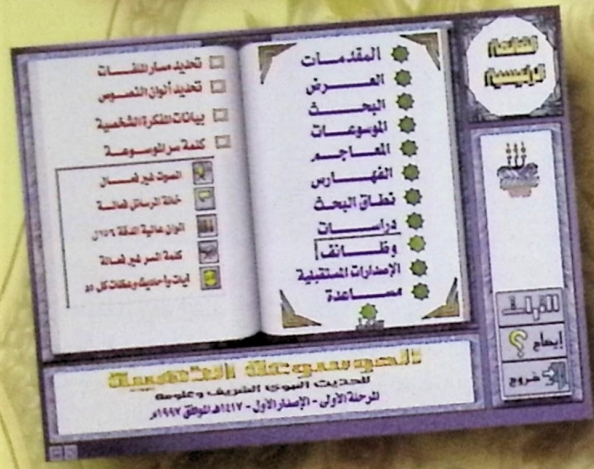 القائمة
الرئيسية
المقدمـــات
العــرض
البحــث
الموسوعات
المعـاجـــم
الفهــارس
نطاق البحث
دراســـات
وظـائف
الإصدارات المستقبلية
مســاعدة
تحديد مسار الملفـــات
تحديد ألوان النصــوص
بيانات المفكرة الشخصية
كلمة سر الموســوعــة
الصوت غير فعــال
خانة الرسائل فعالــة
ألوان عالية الدقة ٢٥٦ لون
كلمة السر غير فعالة
آيات وأحاديث وعظات كل ٥د
التراث
إيضاح
خروج
الموسوعة الذهبية
للحديث النبوي الشريف وعلومه
المرحلة الأولى - الإصدار الأول - ١٤١٧هـ الموافق ١٩٩٧م